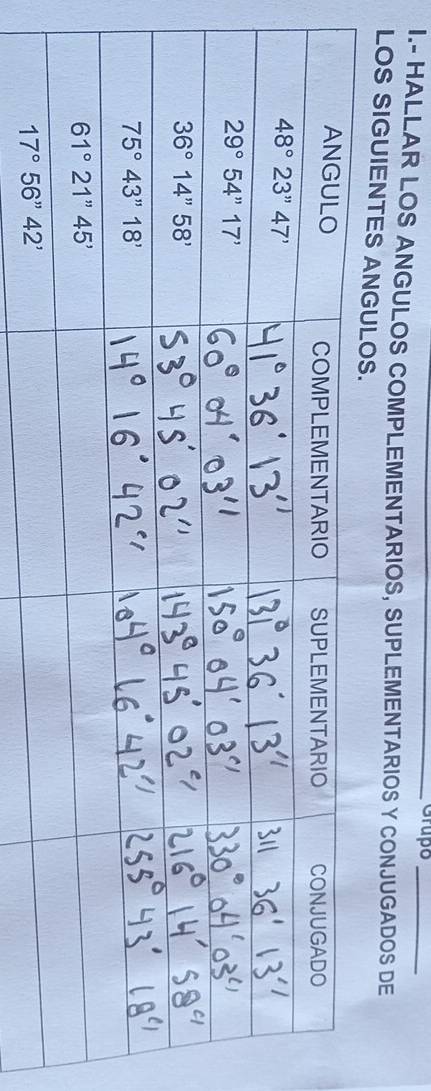 Grupo
I.- HALLAR LOS ANGULOS COMPLEMENTARIOS, SUPLEMENTARIOS Y CONJUGADOS DE
LOS SIGUIENTES ANGULOS.
ANGULO COMPLEMENTARIO SUPLEMENTARIO CONJUGADO
48° 23" 47' 41° 36' 13" 131° 36' 13" 311 36' 13"
29° 54" 17' 60° 04' 03" 150° 04' 03" 330° 04' 03"
36° 14" 58' 53° 45' 02" 143° 45' 02" 216° 14' 58"
75° 43" 18' 14° 16' 42" 104° 16' 42" 255° 43' 18"
61° 21" 45'
17° 56" 42'